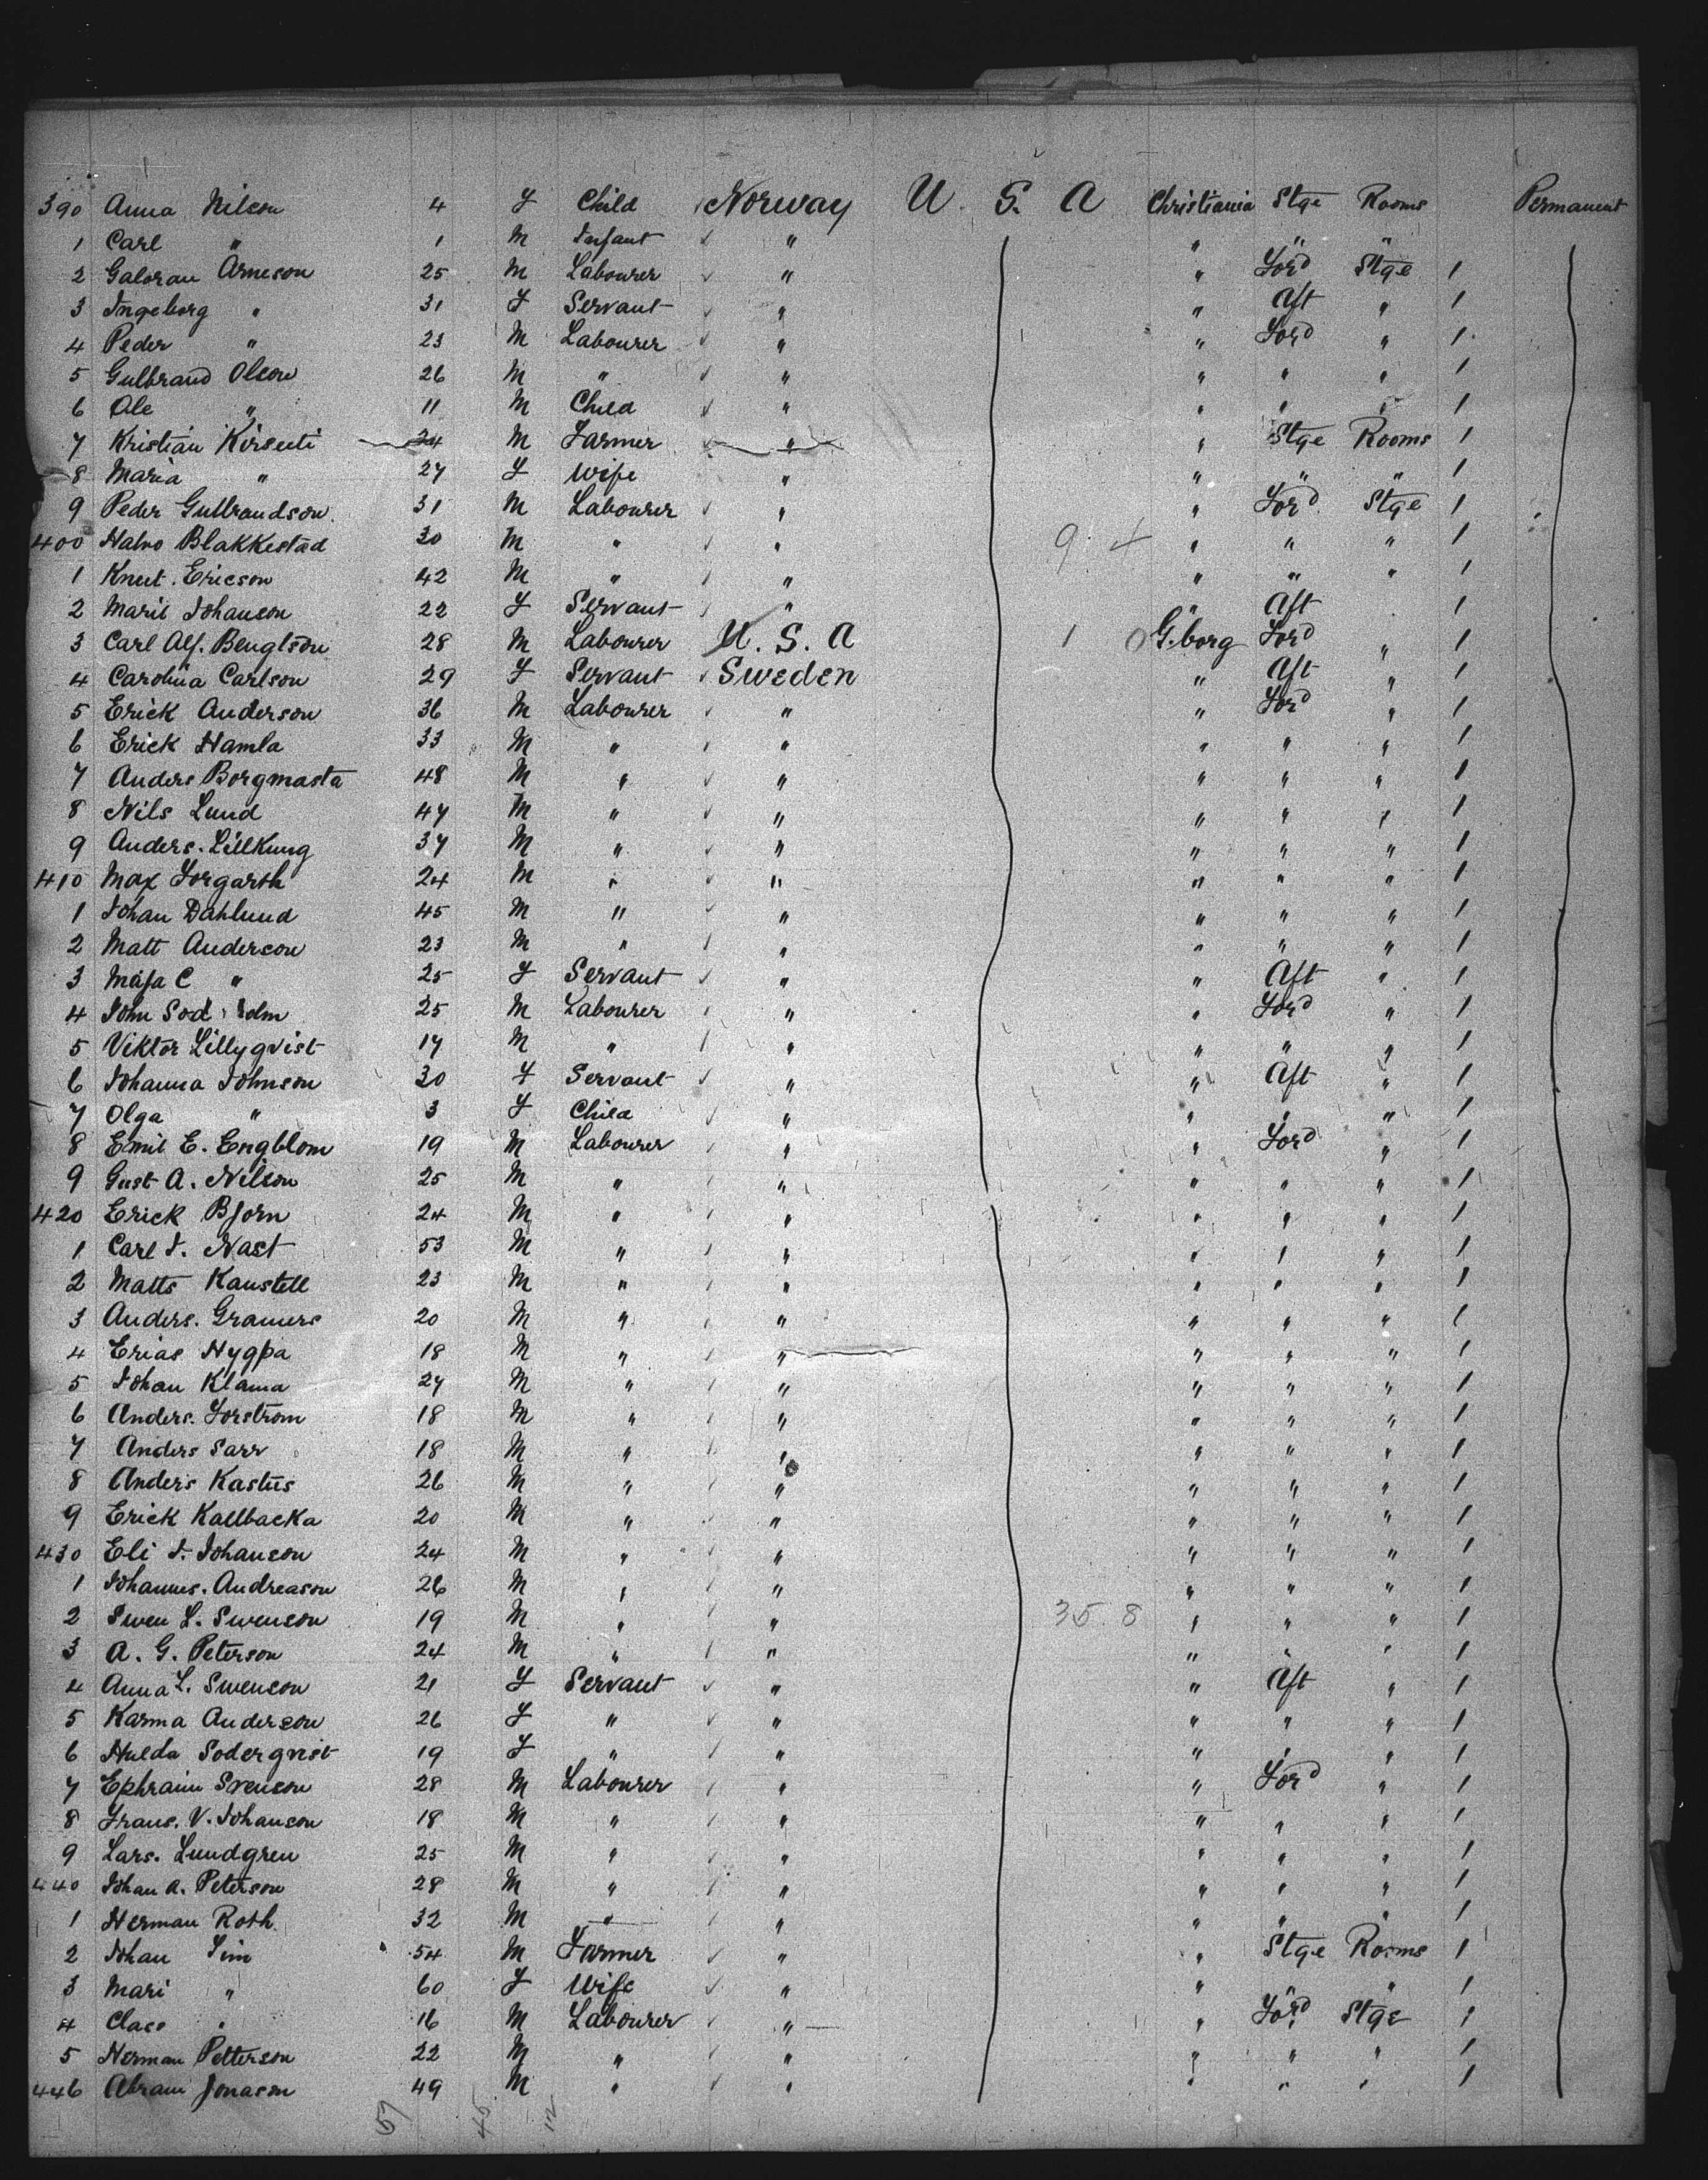 390 Anna Nilson 4 F Child Norway U. S. A Christiania Stge Rooms Permanent
1 Carl " 1 M Infant " " " "
2 Galoran Arneson 25 M Labourer " " Ford Stge 1
3 Ingeborg " 31 F Servant " " Aft " 1
4 Peder " 23 M Labourer " " Ford " 1
5 Gulbrand Olson 26 M " " " " " 1
6 Ole " 11 M Child " " " " 1
7 Kristian 34 M Farmer " " Stge Rooms 1
8 Maria " 27 F Wife " " " " 1
9 Peder Gulbrandson 31 M Labourer " " Ford Stge 1
400 Halvo Blakkestad 30 M " " 9 4 " " " 1
1 Knut Ericson 42 M " " " " " 1
2 Marit Johanson 22 F Servant " " Aft 1
3 Carl Alf. Bengtson 28 M Labourer U. S. A 1 0 G.borg Ford " 1
4 Carolina Carlson 29 F Servant Sweden " Aft " 1
5 Erick Anderson 36 M Labourer " " Ford " 1
6 Erick Hamla 33 M " " " " " 1
7 Anders Borgmasta 48 M " " " " " 1
8 Nils Lund 47 M " " " " " 1
9 Anders. Lillkung 37 M " " " " " 1
410 Max Forgarth 24 M " " " " " 1
1 Johan Dahlund 45 M " " " " " 1
2 Matt Anderson 23 M " " " " " 1
3 Maja C " 25 F Servant " " Aft " 1
4 John 25 M Labourer " " Ford " 1
5 Viktor Lillyqvist 17 M " " " " " 1
6 Johanna Johnson 30 F Servant " " Aft " 1
7 Olga " 3 F Child " " " " 1
8 Emil E. Engblom 19 M Labourer " " Ford " 1
9 Gust A. Nilson 25 M " " " " " 1
420 Erick Bjorn 24 M " " " " " 1
1 Carl J. Nast 53 M " " " " " 1
2 Matts Kaustell 23 M " " " " " 1
3 Anders. Gramers 20 M " " " " " 1
4 Erias Nygpa 18 M " " " " " 1
5 Johan Klama 27 M " " " " " 1
6 Anders. Forstrom 18 M " " " " " 1
7 Anders Sarr 18 M " " " " " 1
8 Anders Kastus 26 M " " " " " 1
9 Erick Kallbacka 20 M " " " " " 1
430 Eli J. Johanson 24 M " " " " " 1
1 Johannes. Andreason 26 M " " " " " 1
2 Swen L. Swenson 19 M " " 35 8 " " " 1
3 A. G. Peterson 24 M " " " " " 1
4 Anna L. Swenson 21 F Servant " " Aft " 1
5 Karma Anderson 26 F " " " " " 1
6 Hulda Soderqvist 19 F " " " " " 1
7 Ephraim Svenson 28 M Labourer " " Ford " 1
8 Frans. V. Johanson 18 M " " " " " 1
9 Lars. Lundgren 25 M " " " " " 1
440 Johan A. Peterson 28 M " " " " " 1
1 Herman Roth 32 M " " " " " 1
2 Johan Sim 54 M Farmer " " Stge Rooms 1
3 Mari " 60 F Wife " " " " 1
4 Claes " 16 M Labourer " " Ford Stge 1
5 Herman Petterson 22 M " " " " " 1
446 Abram Jonason 49 M " " " " " 1
57 45 12